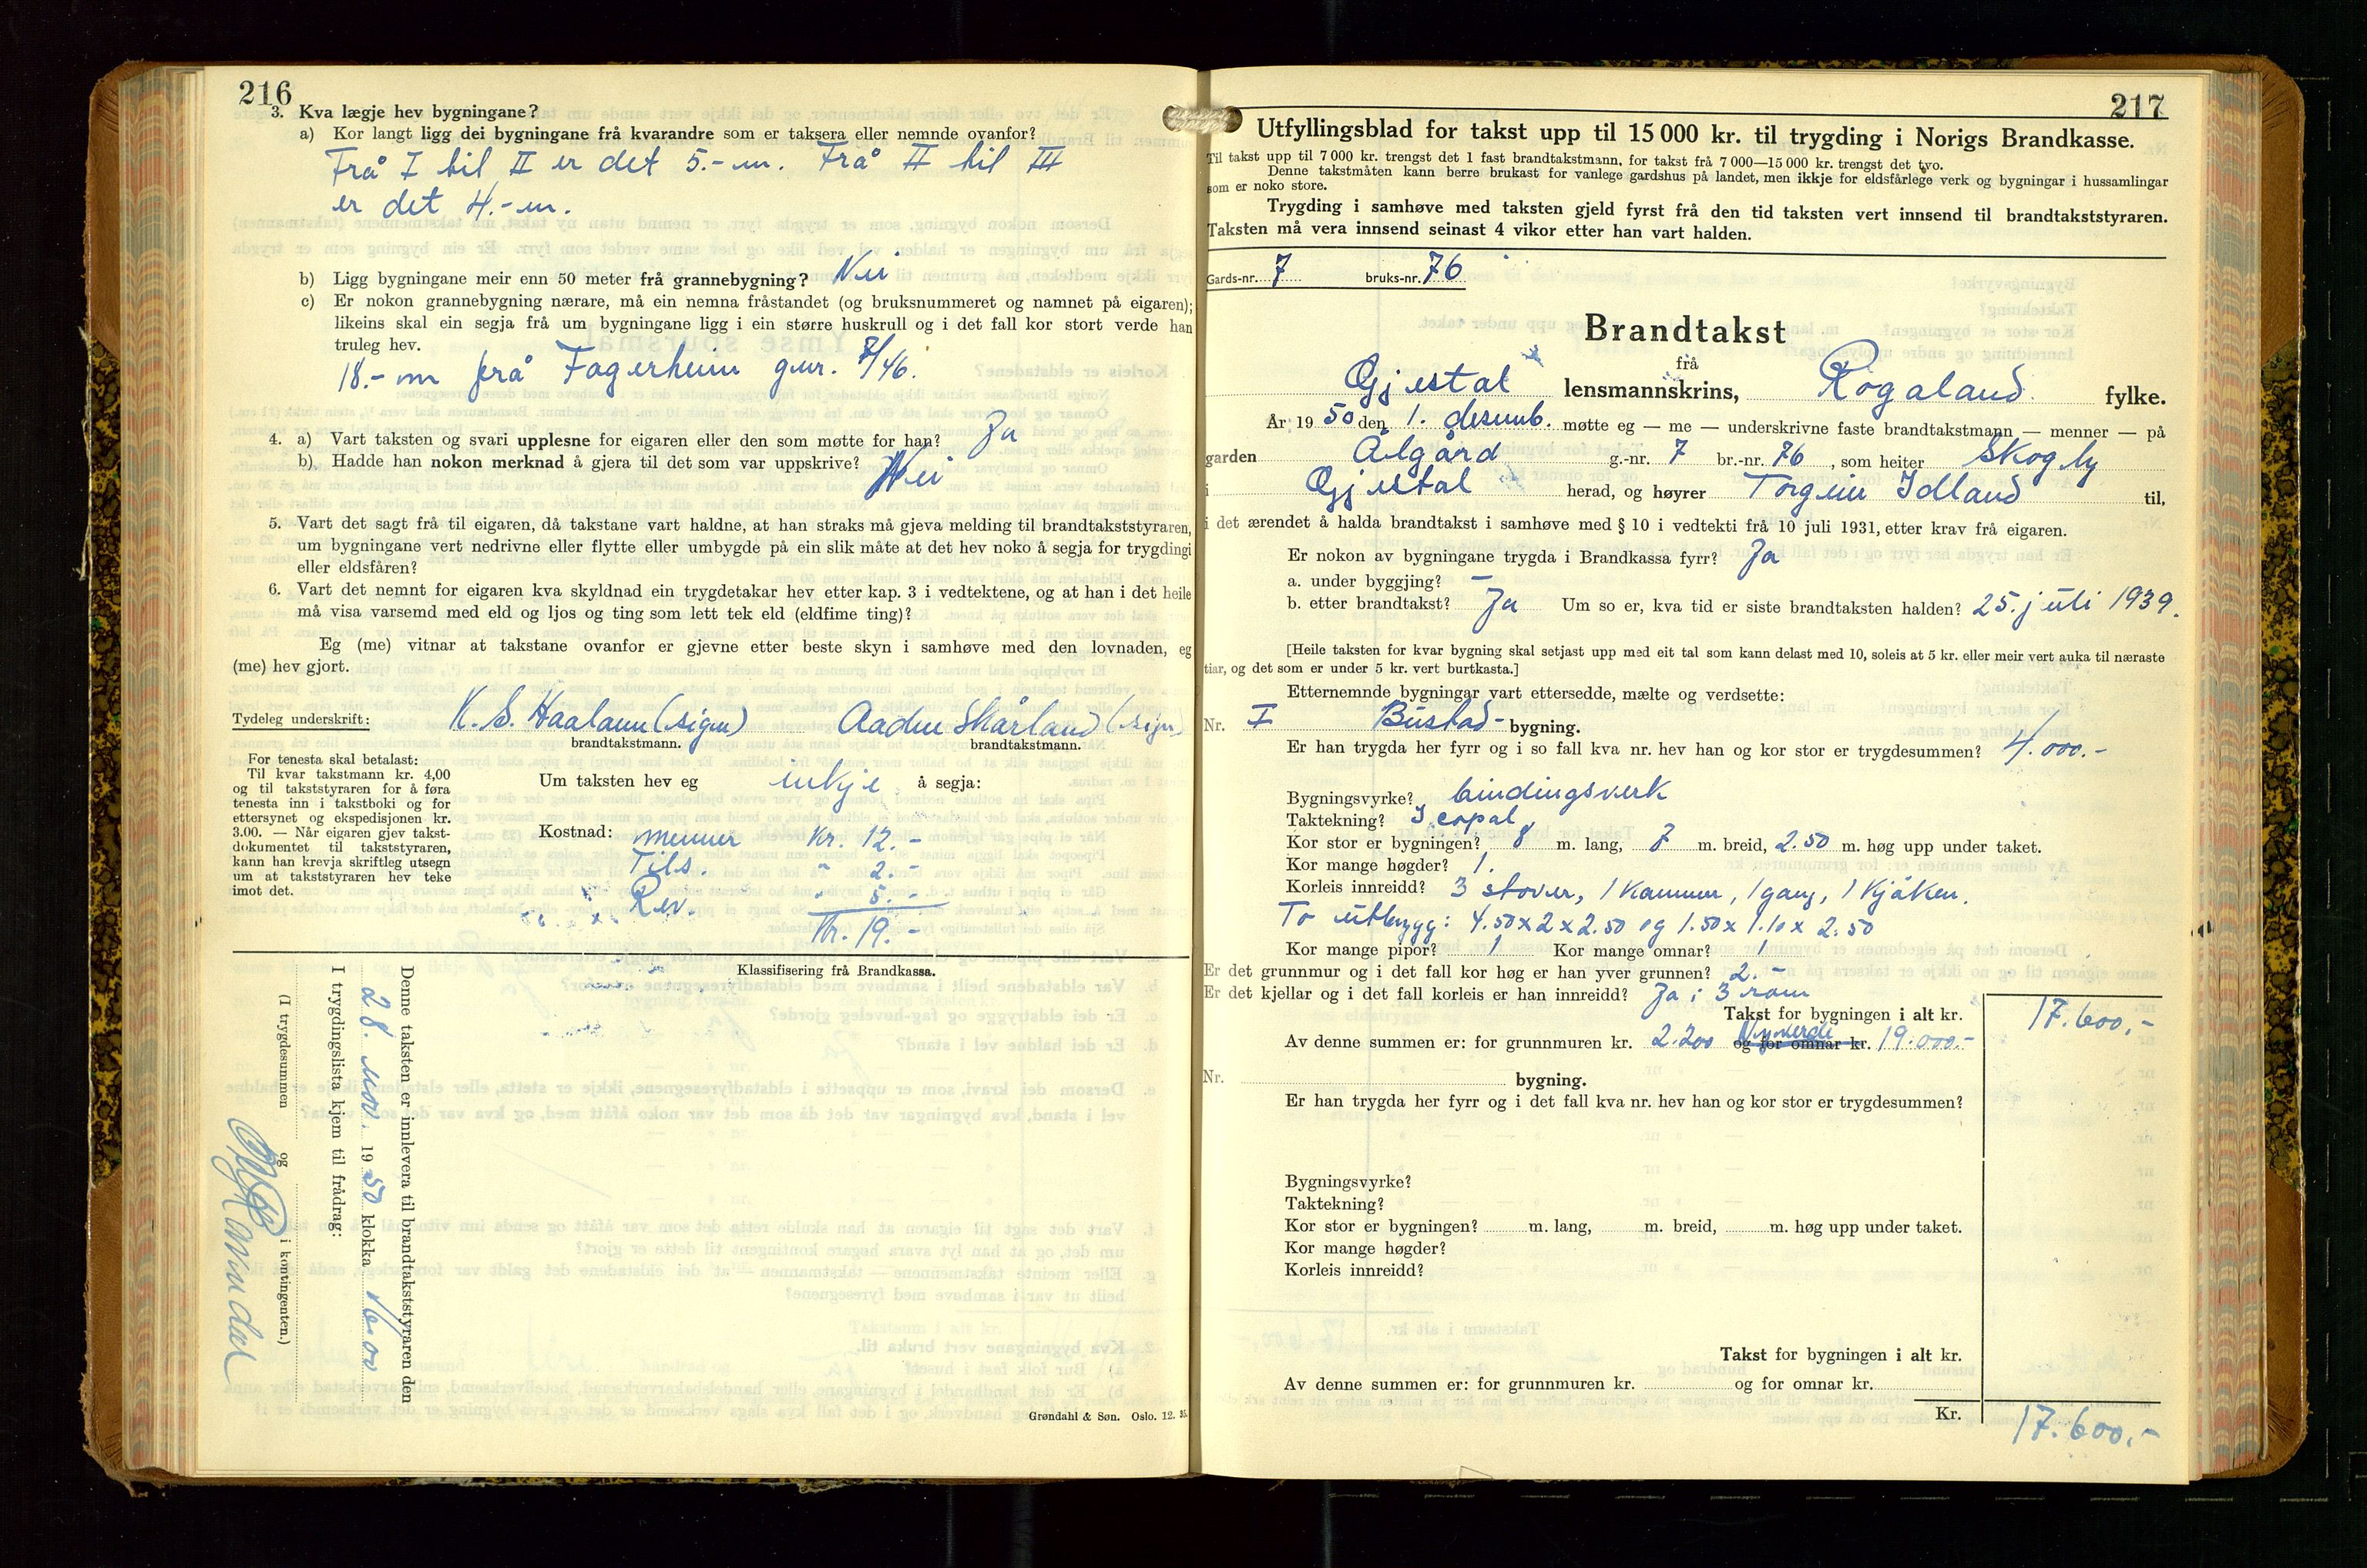 216
3. Kva lægje hev bygningane?
a) Kor langt ligg dei bygningane frå kvarandre som er taksera eller nemnde ovanfor?
Frå I til II er det 5.- m. Frå II til III
er det 4.- m.
b) Ligg bygningane meir enn 50 meter frå grannebygning? Nei
c) Er nokon grannebygning nærare, må ein nemna fråstandet (og bruksnummeret og namnet på eigaren);
likeins skal ein segja frå um bygningane ligg i ein større huskrull og i det fall kor stort verde han
truleg hev.
18.- m frå Fagerheim gnr. 7/46.
4. a) Vart taksten og svari upplesne for eigaren eller den som møtte for han? Ja
b) Hadde han nokon merknad å gjera til det som var uppskrive? Nei
5. Vart det sagt frå til eigaren, då takstane vart haldne, at han straks må gjeva melding til brandtakststyraren,
um bygningane vert nedrivne eller flytte eller umbygde på ein slik måte at det hev noko å segja for trygdingi
eller eldsfåren?
6. Vart det nemnt for eigaren kva skyldnad ein trygdetakar hev etter kap. 3 i vedtektene, og at han i det heile
må visa varsemd med eld og ljos og ting som lett tek eld (eldfime ting)?
Eg (me) vitnar at takstane ovanfor er gjevne etter beste skyn i samhøve med den lovnaden, eg
(me) hev gjort.
Tydeleg underskrift: K. S. Haaland (sign) Aadne Skårland (sign)
brandtakstmann. brandtakstmann.
For tenesta skal betalast:
Til kvar takstmann kr. 4,00
og til takststyraren for å føra
tenesta inn i takstboki og for
ettersynet og ekspedisjonen kr.
3.00. — Når eigaren gjev takst-
dokumentet til takststyraren,
kann han krevja skriftleg utsegn
um at takststyraren hev teke
imot det.
Um taksten hev eg inkje å segja:
Kostnad: menner Kr. 12.-
Tils. " 2.-
Rev. " 5.-
Kr. 19.-
Klassifisering frå Brandkassa.
Denne taksten er innlevera til brandtakststyraren den
28. nov. 1950 klokka 16.00
I trygdingslista kjem til frådrag:
(I trygdesummen og i kontingenten.)
Grøndahl & Søn. Oslo. 12. 35.
217
Utfyllingsblad for takst upp til 15 000 kr. til trygding i Norigs Brandkasse.
Til takst upp til 7 000 kr. trengst det 1 fast brandtakstmann, for takst frå 7 000—15 000 kr. trengst det tvo.
Denne takstmåten kann berre brukast for vanlege gardshus på landet, men ikkje for eldsfårlege verk og bygningar i hussamlingar
som er noko store.
Trygding i samhøve med taksten gjeld fyrst frå den tid taksten vert innsend til brandtakststyraren.
Taksten må vera innsend seinast 4 vikor etter han vart halden.
Gards-nr. 7 bruks-nr. 76
Brandtakst
frå
Gjestal lensmannskrins, Rogaland fylke.
År 1950 den 1. desemb. møtte eg — me — underskrivne faste brandtakstmann — menner — på
garden Ålgård g.-nr. 7 br.-nr. 76, som heiter Skogly
i Gjestal herad, og høyrer Torgeir Idland til,
i det ærendet å halda brandtakst i samhøve med § 10 i vedtekti frå 10 juli 1931, etter krav frå eigaren.
Er nokon av bygningane trygda i Brandkassa fyrr? Ja
a. under byggjing? –
b. etter brandtakst? Ja Um so er, kva tid er siste brandtaksten halden? 25. juli 1939.
[Heile taksten for kvar bygning skal setjast upp med eit tal som kann delast med 10, soleis at 5 kr. eller meir vert auka til næraste
tiar, og det som er under 5 kr. vert burtkasta.]
Etternemnde bygningar vart ettersedde, mælte og verdsette:
Nr. I Bustad- bygning.
Er han trygda her fyrr og i so fall kva nr. hev han og kor stor er trygdesummen? 4.000.-
Bygningsvyrke? bindingsverk
Taktekning? Icopal
Kor stor er bygningen? 8 m. lang, 7 m. breid, 2.50 m. høg upp under taket.
Kor mange høgder? 1.
Korleis innreidd? 3 stover, 1 kammer, 1 gang, 1 kjøken.
To utbygg: 4.50 x 2 x 2.50 og 1.50 x 1.10 x 2.50
Kor mange pipor? 1 Kor mange omnar? 1
Er det grunnmur og i det fall kor høg er han yver grunnen? 2.-
Er det kjellar og i det fall korleis er han innreidd? Ja i 3 rom
Takst for bygningen i alt kr. 17.600.-
Av denne summen er: for grunnmuren kr. 2.200 og for omnar kr. Nyverdi 19.000.-
Nr. bygning.
Er han trygda her fyrr og i det fall kva nr. hev han og kor stor er trygdesummen?
Bygningsvyrke?
Taktekning?
Kor stor er bygningen? m. lang, m. breid, m. høg upp under taket.
Kor mange høgder?
Korleis innreidd?
Takst for bygningen i alt kr.
Av denne summen er: for grunnmuren kr. og for omnar kr.
Kr. 17.600.-